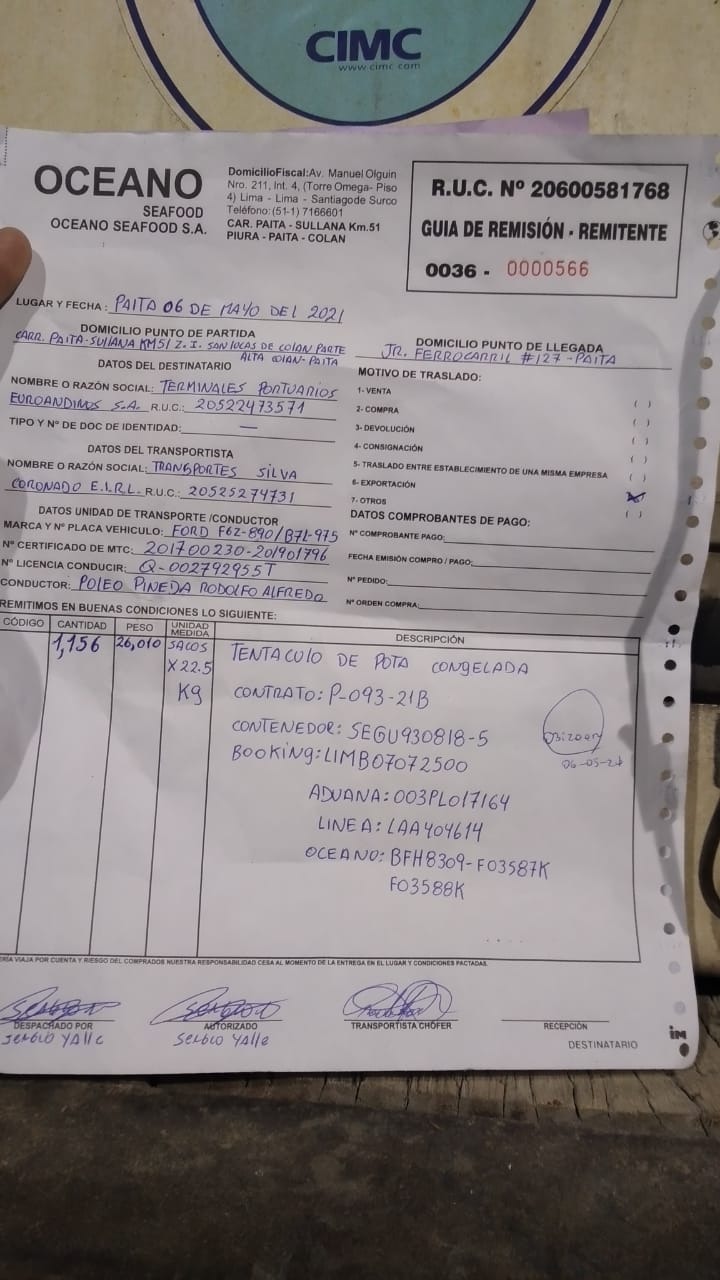 CIMC
www.cimc.com
OCEANO
SEAFOOD
OCEANO SEAFOOD S.A.
DomicilioFiscal:Av. Manuel Olguin
Nro. 211, Int. 4, (Torre Omega- Piso
4) Lima - Lima - Santiagode Surco
Teléfono:(51-1) 7166601
CAR. PAITA - SULLANA Km.51
PIURA - PAITA - COLAN
R.U.C. Nº 20600581768
GUIA DE REMISIÓN - REMITENTE
0036 - 0000566
LUGAR Y FECHA : PAITA 06 DE MAYO DEL 2021
DOMICILIO PUNTO DE PARTIDA
CARR. PAITA-SULLANA KM51 Z.I. SAN LUCAS DE COLAN PARTE
ALTA COLAN-PAITA
DOMICILIO PUNTO DE LLEGADA
JR. FERROCARRIL #127-PAITA
DATOS DEL DESTINATARIO
NOMBRE O RAZÓN SOCIAL: TERMINALES PORTUARIOS
EUROANDINOS S.A. R.U.C.: 20522473571
TIPO Y Nº DE DOC DE IDENTIDAD: —
DATOS DEL TRANSPORTISTA
NOMBRE O RAZÓN SOCIAL: TRANSPORTES SILVA
CORONADO E.I.R.L. R.U.C.: 20525274731
DATOS UNIDAD DE TRANSPORTE /CONDUCTOR
MARCA Y Nº PLACA VEHICULO: FORD F6Z-890/B7L-975
Nº CERTIFICADO DE MTC: 201700230-201901796
Nº LICENCIA CONDUCIR: Q-002792955T
CONDUCTOR: POLEO PINEDA RODOLFO ALFREDO
MOTIVO DE TRASLADO:
1- VENTA ( )
2- COMPRA ( )
3- DEVOLUCIÓN ( )
4- CONSIGNACIÓN ( )
5- TRASLADO ENTRE ESTABLECIMIENTO DE UNA MISMA EMPRESA ( )
6- EXPORTACIÓN (X)
7- OTROS ( )
DATOS COMPROBANTES DE PAGO:
Nº COMPROBANTE PAGO:
FECHA EMISIÓN COMPRO / PAGO:
Nº PEDIDO:
Nº ORDEN COMPRA:
REMITIMOS EN BUENAS CONDICIONES LO SIGUIENTE:
CÓDIGO CANTIDAD PESO UNIDAD MEDIDA DESCRIPCIÓN
1,156 26,010 SACOS TENTACULO DE POTA CONGELADA
X 22.5
Kg CONTRATO: P-093-21B
CONTENEDOR: SEGU930818-5
BOOKING: LIMB07072500
06-05-21
ADUANA: 003PL017164
LINEA: LAA404614
OCEANO: BFH8309-F03587K
F03588K
ERÍA VIAJA POR CUENTA Y RIESGO DEL COMPRADOS NUESTRA RESPONSABILIDAD CESA AL MOMENTO DE LA ENTREGA EN EL LUGAR Y CONDICIONES PACTADAS.
DESPACHADO POR
Sergio Yalle
AUTORIZADO
Sergio Yalle
TRANSPORTISTA CHÓFER
RECEPCIÓN
DESTINATARIO